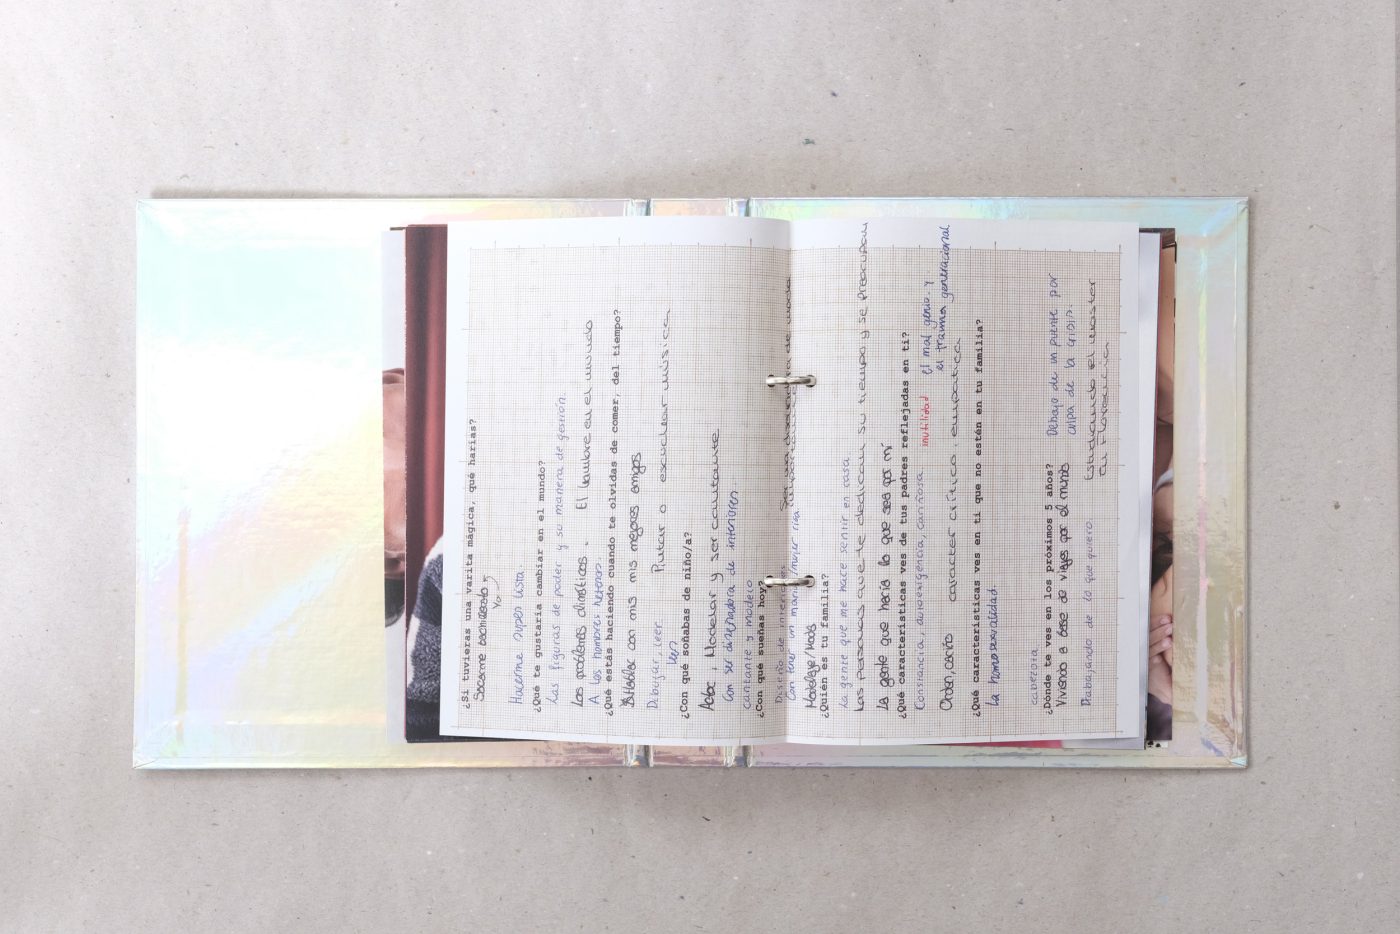 ¿Si tuvieras una varita mágica, qué harías?
Sacarme bachillerato
Yo
Hacerme super lista.
¿Qué te gustaría cambiar en el mundo?
Las figuras de poder y su manera de gestión.
Los problemas climáticos. El hambre en el mundo
A los hombres heteros.
¿Qué estás haciendo cuando te olvidas de comer, del tiempo?
Hablar con mis mejores amigos
Dibujar, leer. Pintar o escuchar música
leer
¿Con qué soñabas de niño/a?
Actor, Modelar y ser cantante
Con ser diseñadora de interiores.
cantante y modelo
¿Con qué sueñas hoy?
Diseño de interiores Ser una diseñadora de moda
Con tener un marido/mujer rica
Modelaje/Moda
¿Quién es tu familia?
La gente que me hace sentir en casa
Las personas que te dedican su tiempo y se preocupan
La gente que haría lo que sea por mí
¿Qué características ves de tus padres reflejadas en ti?
Constancia, autoexigencia, cariñosa inutilidad El mal genio. y.
el trauma generacional
Orden, cariño caracter crítico, empatica
¿Qué características ves en ti que no estén en tu familia?
La homosexualidad
cabezota
¿Dónde te ves en los próximos 5 años?
Viviendo a base de viajes por el mundo Debajo de un puente por
culpa de la crisis.
Trabajando de lo que quiero. Estudiando el master
en Florencia